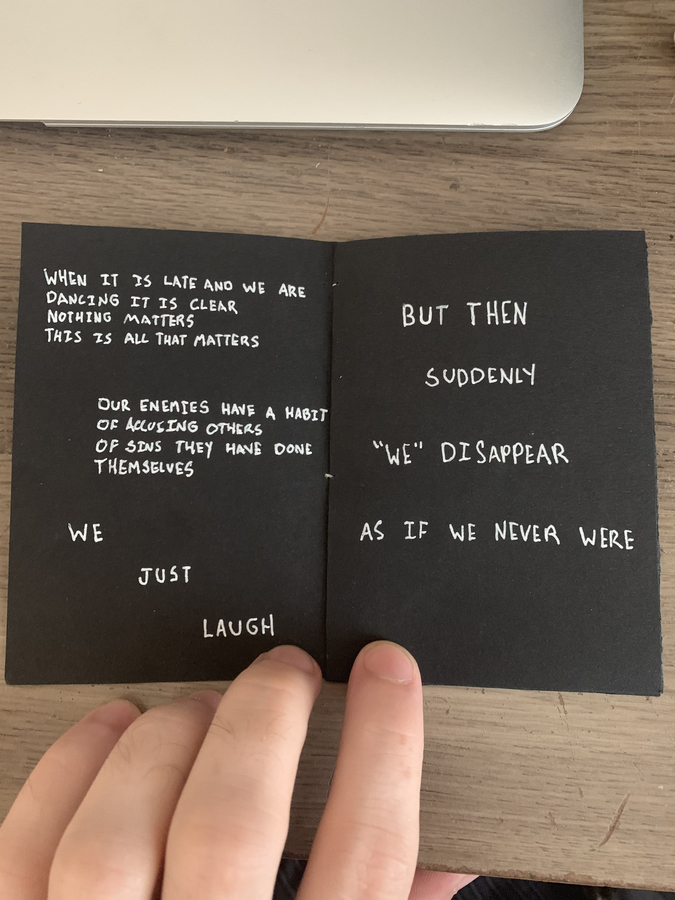 WHEN IT IS LATE AND WE ARE
DANCING IT IS CLEAR
NOTHING MATTERS
THIS IS ALL THAT MATTERS
OUR ENEMIES HAVE A HABIT
OF ACCUSING OTHERS
OF SINS THEY HAVE DONE
THEMSELVES
WE
JUST
LAUGH
BUT THEN
SUDDENLY
"WE" DISAPPEAR
AS IF WE NEVER WERE